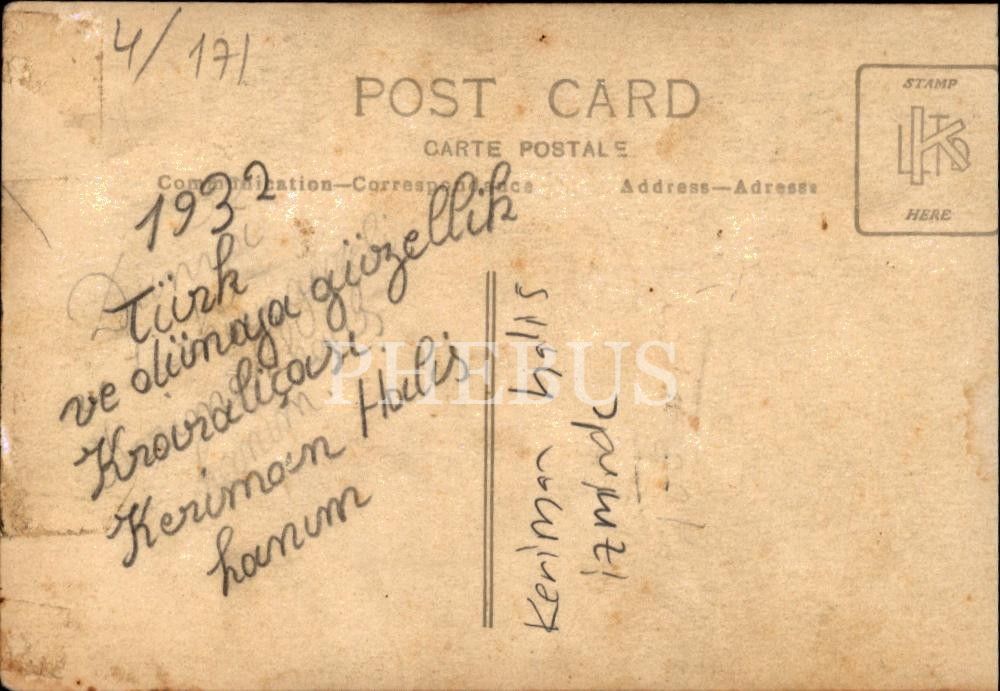 4/171
POST CARD
CARTE POSTALE
Communication—Correspondance
Address—Adresse
STAMP
HERE
1932
Türk
ve dünaya güzellik
Kraliçası
Keriman Halis
hanım
Keriman halis
izmirde
PHEBUS